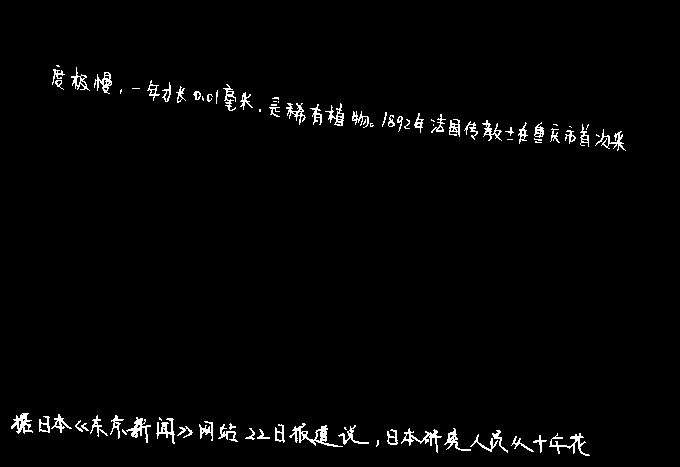 度极慢，一年才长0.01毫米，是稀有植物。1892年法国传教士在重庆市首次采
据日本《东京新闻》网站22日报道说，日本研究人员从十年花